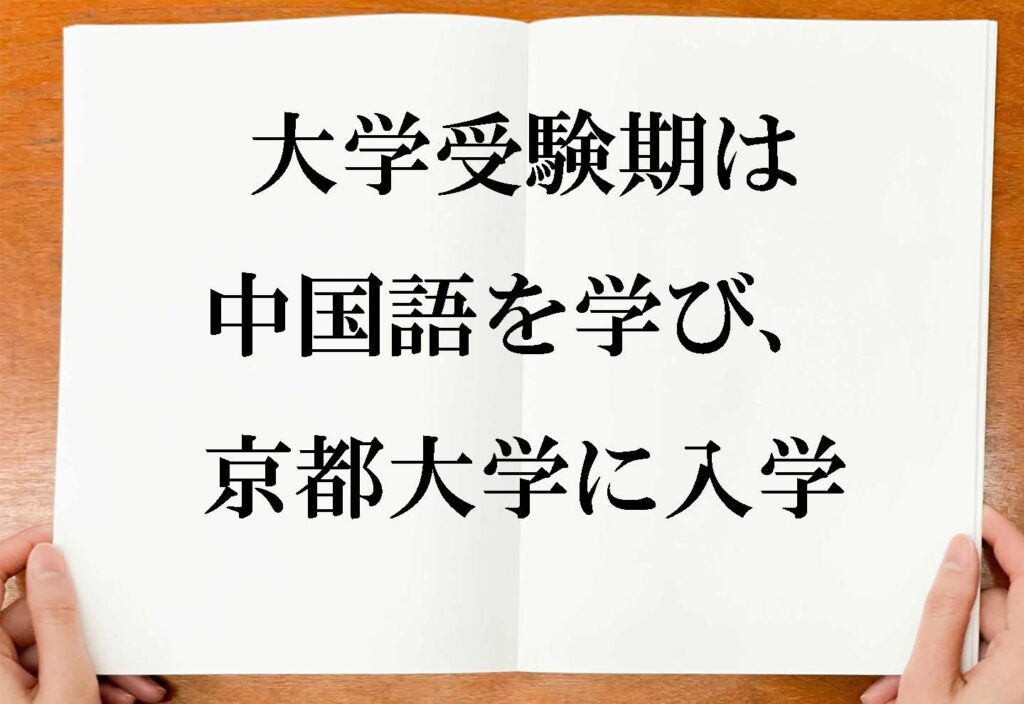 大学受験期は
中国語を学び、
京都大学に入学